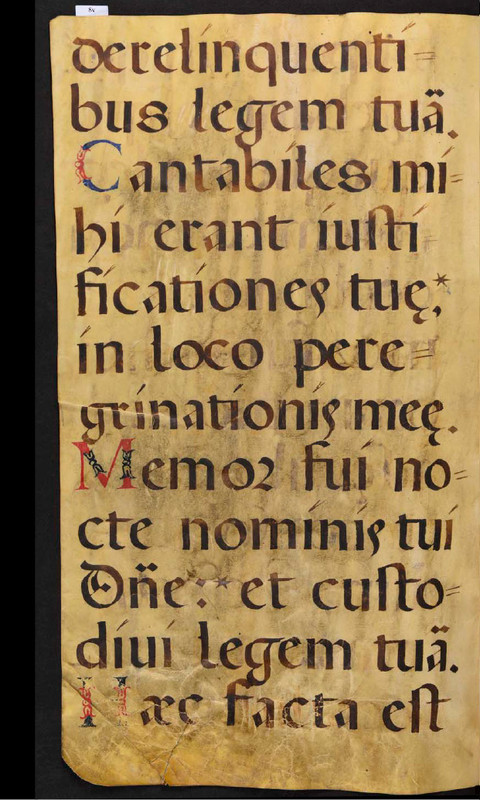 8v
derelinquenti=
bus legem tuã.
Cantabiles mi=
hi erant iusti
ficationes tuę,*
in loco pere=
grinationis meę.
Memor fui no=
cte nominis tui
Dñe:* et custo=
divi legem tuã.
Hæc facta est